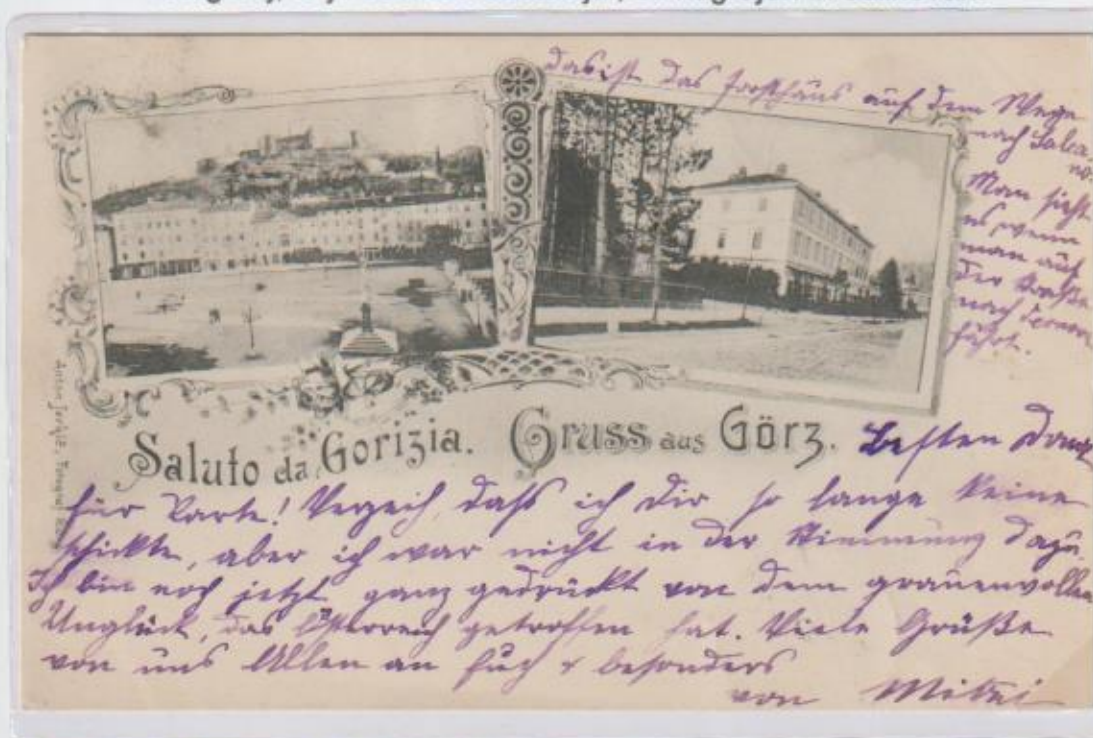 Das ist das Forsthaus auf dem Wege
nach
Man sieht
es wenn
man auf
der Straße
nach
fährt.
Saluto da Gorizia. Gruss aus Görz.
Besten Dank
für Karte! Verzeih, daß ich Dir so lange keine
schickte, aber ich war nicht in der Stimmung dazu.
Ich bin noch jetzt ganz gedrückt von dem grauenvollen
Unglück, das Österreich getroffen hat. Viele Grüße
von uns Allen an Euch & besonders
von Mitzi